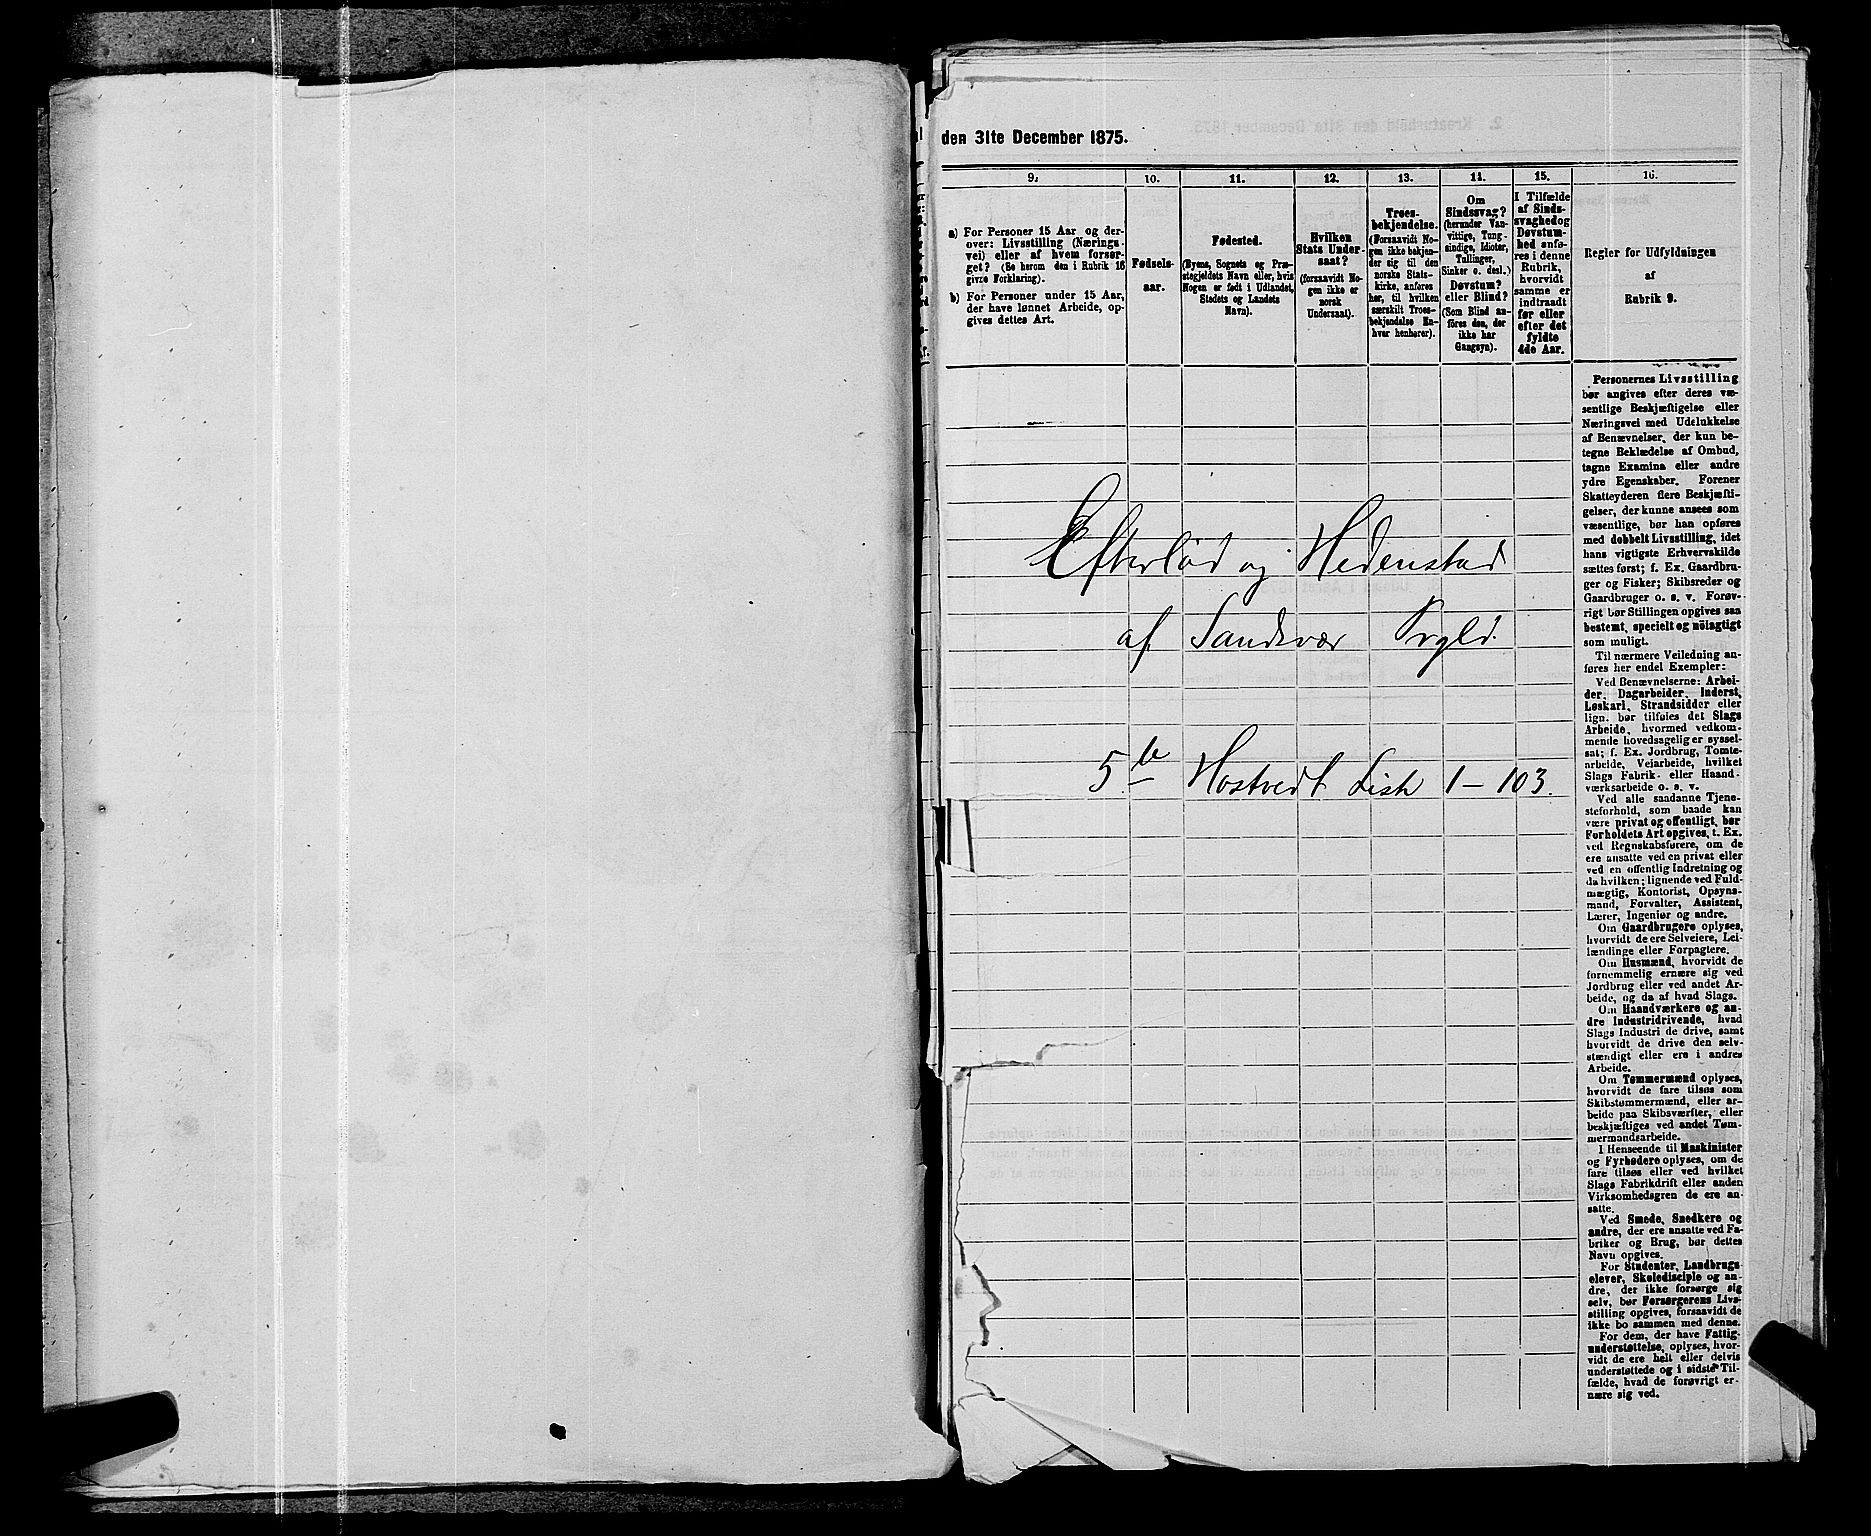 den 31te December 1875.
9.
a) For Personer 15 Aar og der-
over: Livsstilling (Nærings-
vei) eller af hvem forsør-
get? (Se herom den i Rubrik 16
givne Forklaring).
b) For Personer under 15 Aar,
der have lønnet Arbeide, op-
gives dettes Art.
10.
Fødsels-
aar.
11.
Fødested.
(Byens, Sognets og Præ-
stegjeldets Navn eller, hvis
Nogen er født i Udlandet,
Stedets og Landets
Navn).
12.
Hvilken
Stats Under-
saat?
(forsaavidt No-
gen ikke er
norsk
Undersaat).
13.
Troes-
bekjendelse.
(Forsaavidt No-
gen ikke bekjen-
der sig til den
norske Stats-
kirke, anføres
her, til hvilken
særskilt Troes-
bekjendelse En-
hver henhører).
14.
Om
Sindssvag?
(herunder Van-
vittige, Tung-
sindige, Idioter,
Tullinger,
Sinker o. desl.)
Døvstum?
eller Blind?
(Som Blind an-
føres den, der
ikke har
Gangsyn).
15.
I Tilfælde
af Sinds-
svaghed og
Døvstum-
hed anfø-
res i denne
Rubrik,
hvorvidt
samme er
indtraadt
før eller
efter det
fyldte
4de Aar.
16.
Regler for Udfyldningen
af
Rubrik 9.
Efterlød og Hedenstad
af Sandsvær Prgld.
5te Hostvedt Liste 1 - 103.
Personernes Livsstilling
bør angives efter deres væ-
sentlige Beskjæftigelse eller
Næringsvei med Udelukkelse
af Benævnelser, der kun be-
tegne Beklædelse af Ombud,
tagne Examina eller andre
ydre Egenskaber. Forener
Skatteyderen flere Beskjæfti-
gelser, der kunne ansees som
væsentlige, bør han opføres
med dobbelt Livsstilling, idet
hans vigtigste Erhvervskilde
sættes først; f. Ex. Gaardbru-
ger og Fisker; Skibsreder og
Gaardbruger o. s. v. Forøv-
rigt bør Stillingen opgives saa
bestemt, specielt og nöiagtigt
som muligt.
Til nærmere Veiledning an-
føres her endel Exempler:
Ved Benævnelserne: Arbei-
der, Dagarbeider, Inderst,
Løskarl, Strandsidder eller
lign. bør tilføies det Slags
Arbeide, hvormed vedkom-
mende hovedsagelig er syssel-
sat; f. Ex. Jordbrug, Tomte-
arbeide, Veiarbeide, hvilket
Slags Fabrik- eller Haand-
værksarbeide o. s. v.
Ved alle saadanne Tjene-
steforhold, som baade kan
være privat og offentligt, bør
Forholdets Art opgives, t. Ex.
ved Regnskabsførere, om de
ere ansatte ved en privat eller
ved en offentlig Indretning og
da hvilken; lignende ved Fuld-
mægtig, Kontorist, Opsyns-
mand, Forvalter, Assistent,
Lærer, Ingeniør og andre.
Om Gaardbrugere oplyses,
hvorvidt de ere Selveiere, Lei-
lændinge eller Forpagtere.
Om Husmænd, hvorvidt de
fornemmelig ernære sig ved
Jordbrug eller ved andet Ar-
beide, og da af hvad Slags.
Om Haandværkere og an-
dre Industridrivende, hvad
Slags Industri de drive, samt
hvorvidt de drive den selv-
stændigt eller ere i andres
Arbeide.
Om Tømmermænd oplyses,
hvorvidt de fare tilsøs som
Skibstømmermænd, eller ar-
beide paa Skibsværfter, eller
beskjæftiges ved andet Tøm-
mermandsarbeide.
I Henseende til Maskinister
og Fyrbødere oplyses, om de
fare tilsøs eller ved hvilket
Slags Fabrikdrift eller anden
Virksomhedsgren de ere an-
satte.
Ved Smede, Snedkere og
andre, der ere ansatte ved Fa-
briker og Brug, bør dettes
Navn opgives.
For Studenter, Landbrugs-
elever, Skoledisciple og an-
dre, der ikke forsørge sig
selv, bør Forsørgerens Livs-
stilling opgives, forsaavidt de
ikke bo sammen med denne.
For dem, der have Fattig-
understøttelse, oplyses, hvor-
vidt de ere helt eller delvis
understøttede og i sidste Til-
fælde, hvad de forøvrigt er-
nære sig ved.